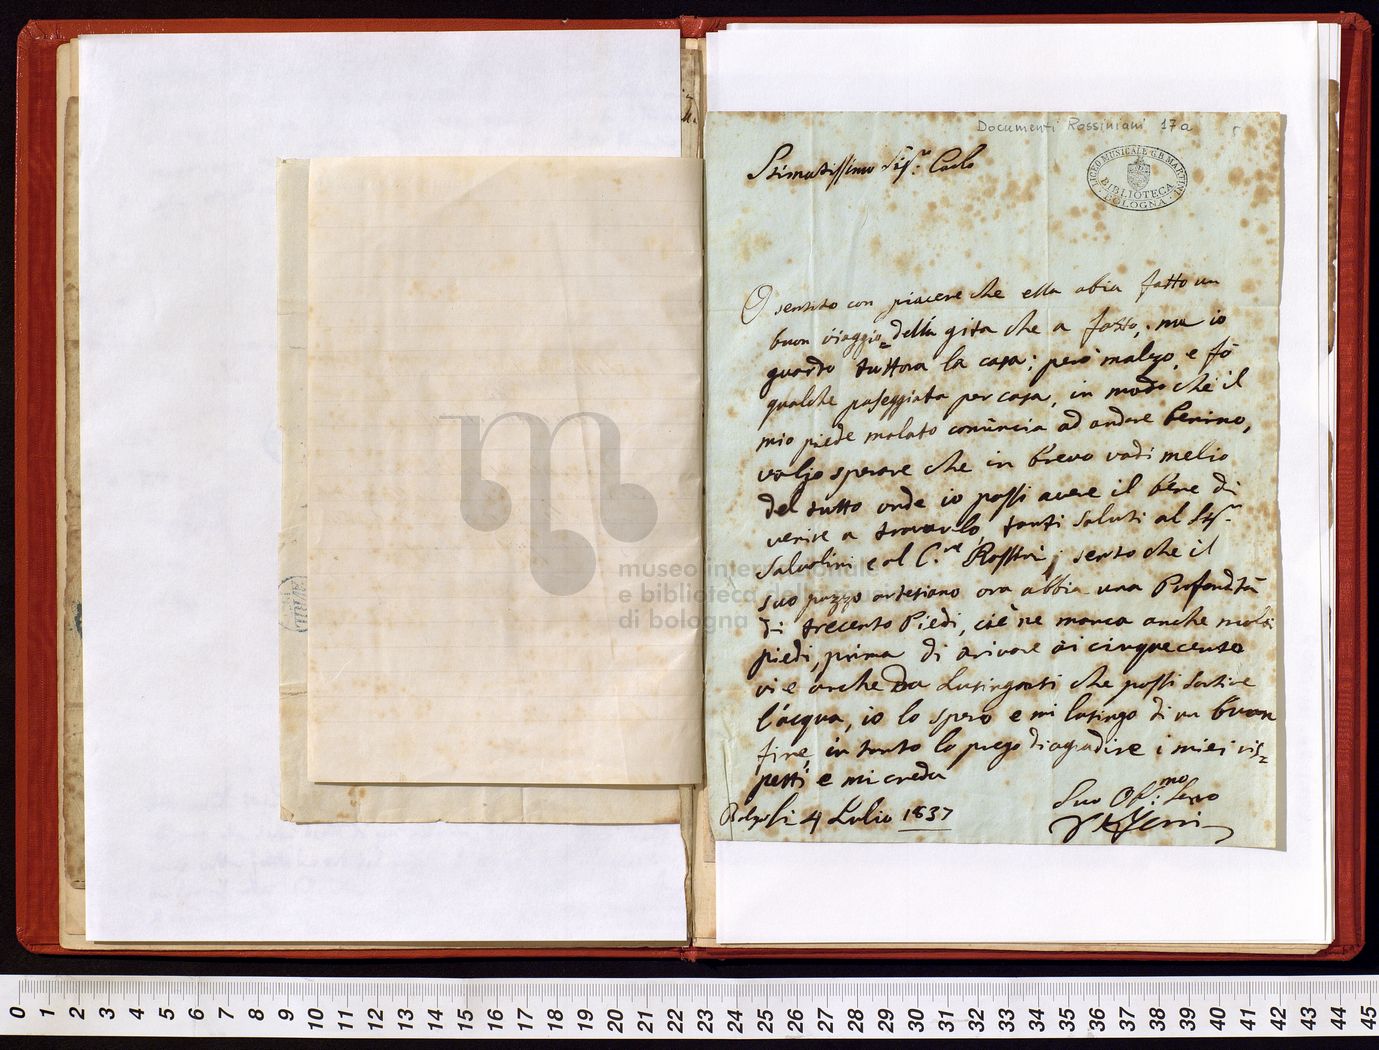 Documenti Rossiniani 17a
LICEO MUSICALE G.B. MARTINI
BIBLIOTECA
BOLOGNA
Stimatissimo Sigr. Carlo
O sentito con piacere che ella abia fatto un
buon viaggio della gita che a fatto, ma io
guardo tuttora la casa; però malzo e fò
qualche paseggiata per casa, in modo che il
mio piede malato comincia ad andare benino,
voglio sperare che in brevo vadi melio
del tutto onde io possi avere il bene di
venire a trovarlo tanti saluti al Sigr.
Salvolini e al C.re Rossini, sento che il
suo pozzo artesiano ora abbia una Profondità
di trecento Piedi, cie ne manca anche molti
piedi, prima di arivare ai cinquecento
vi e anche da Lusingarsi che possi sortire
l'acqua, io lo spero e mi lusingo di un buon
fine, in tanto lo prego di agradire i miei ris=
petti e mi creda
li 4 Lulio 1837
Suo Obl.mo Servo
museo internazionale
e biblioteca della musica
di bologna
0 1 2 3 4 5 6 7 8 9 10 11 12 13 14 15 16 17 18 19 20 21 22 23 24 25 26 27 28 29 30 31 32 33 34 35 36 37 38 39 40 41 42 43 44 45